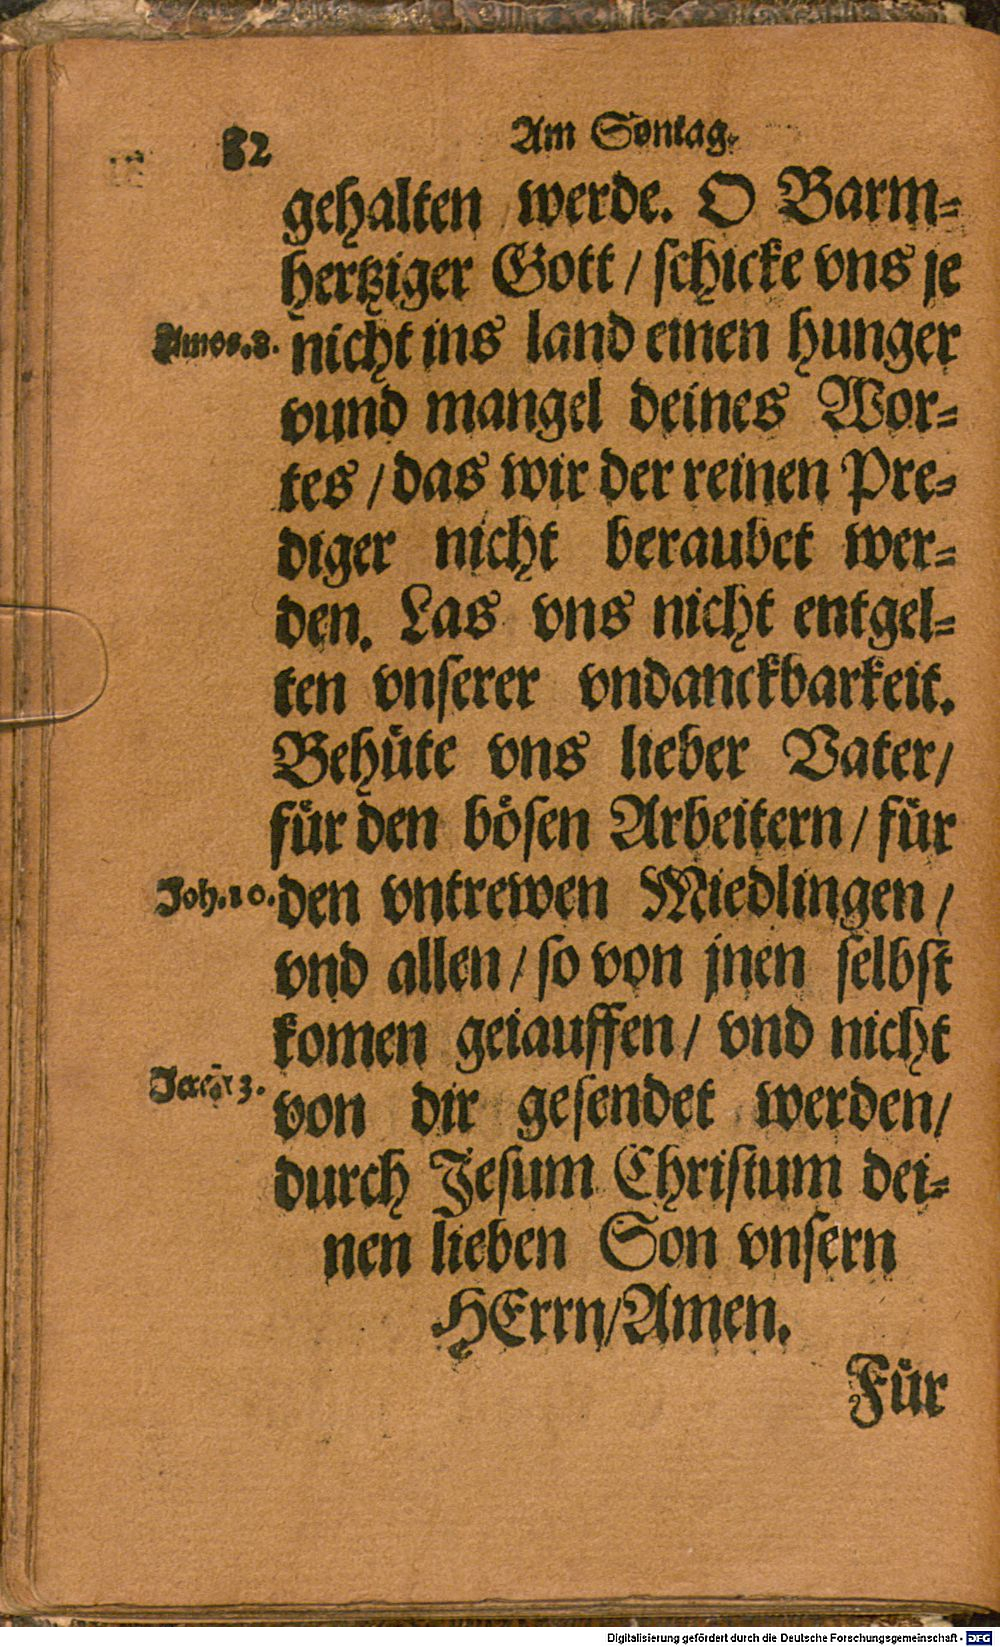 32 Am Sontag.
gehalten werde. O Barm-
hertziger Gott / schicke vns je
Amos. 8. nicht ins land einen hunger
vund mangel deines Wor-
tes / das wir der reinen Pre-
diger nicht beraubet wer-
den. Las vns nicht entgel-
ten vnserer vndanckbarkeit.
Behüte vns lieber Vater /
für den bösen Arbeitern / für
Joh. 10. den vntrewen Miedlingen /
vnd allen / so von jnen selbst
komen gelauffen / vnd nicht
von dir gesendet werden /
durch Jesum Christum dei-
nen lieben Son vnsern
HErrn / Amen.
Für
Digitalisierung gefördert durch die Deutsche Forschungsgemeinschaft - DFG